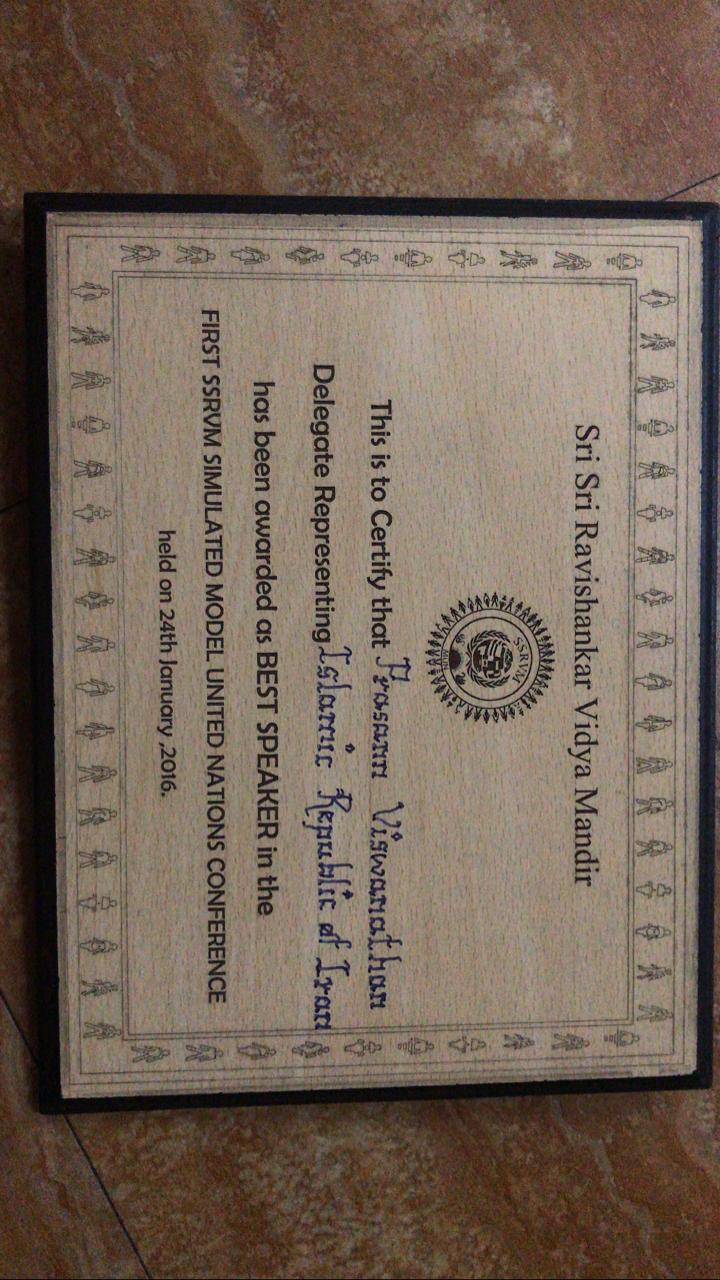 Sri Sri Ravishankar Vidya Mandir
SSRVM
This is to Certify that Prasann Viswanathan
Delegate Representing Islamic Republic of Iran
has been awarded as BEST SPEAKER in the
FIRST SSRVM SIMULATED MODEL UNITED NATIONS CONFERENCE
held on 24th January ,2016.